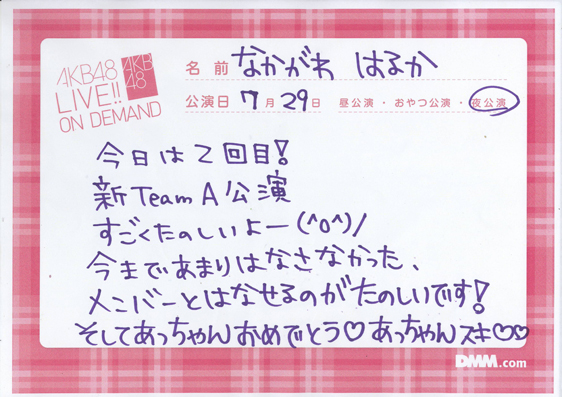 AKB48
LIVE!!
ON DEMAND
AKB
48
名前 なかがわ はるか
公演日 7月29日 昼公演・おやつ公演・夜公演
今日は2回目!
新TeamA公演
すごくたのしいよー(^o^)/
今まであまりはなさなかった、
メンバーとはなせるのがたのしいです!
そしてあっちゃんおめでとう♡あっちゃんスキ♡♡
DMM.com